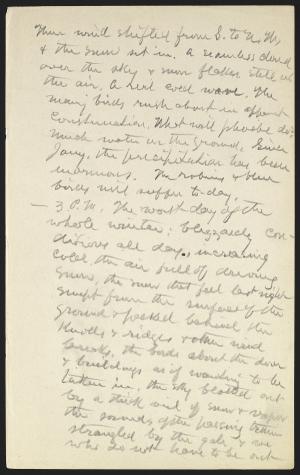 Then wind shifted from S. to N.W.
& the snow set in. A seamless cloud
over the sky & snow flakes
the air. A real cold wave. The
many birds rush about in apparent
consternation. What will phoebe do?
Much water in the ground. Since
Jany, the precipitation has been
enormous. The robins & blue
birds will suffer to-day.
— 3 P.M. The worst day of the
whole winter; blizzardy con-
ditions all day, increasing
cold, the air full of driving
snow, the snow that fell last night
swept from the surface of the
ground & packed behind the
knolls & ridges & other wind
breaks, the birds about the door
& buildings as if wanting to be
taken in, the sky blotted out
by a thick veil of snow & vapor
the sounds of the passing trains
strangled by the gale & we
who do not have to be out